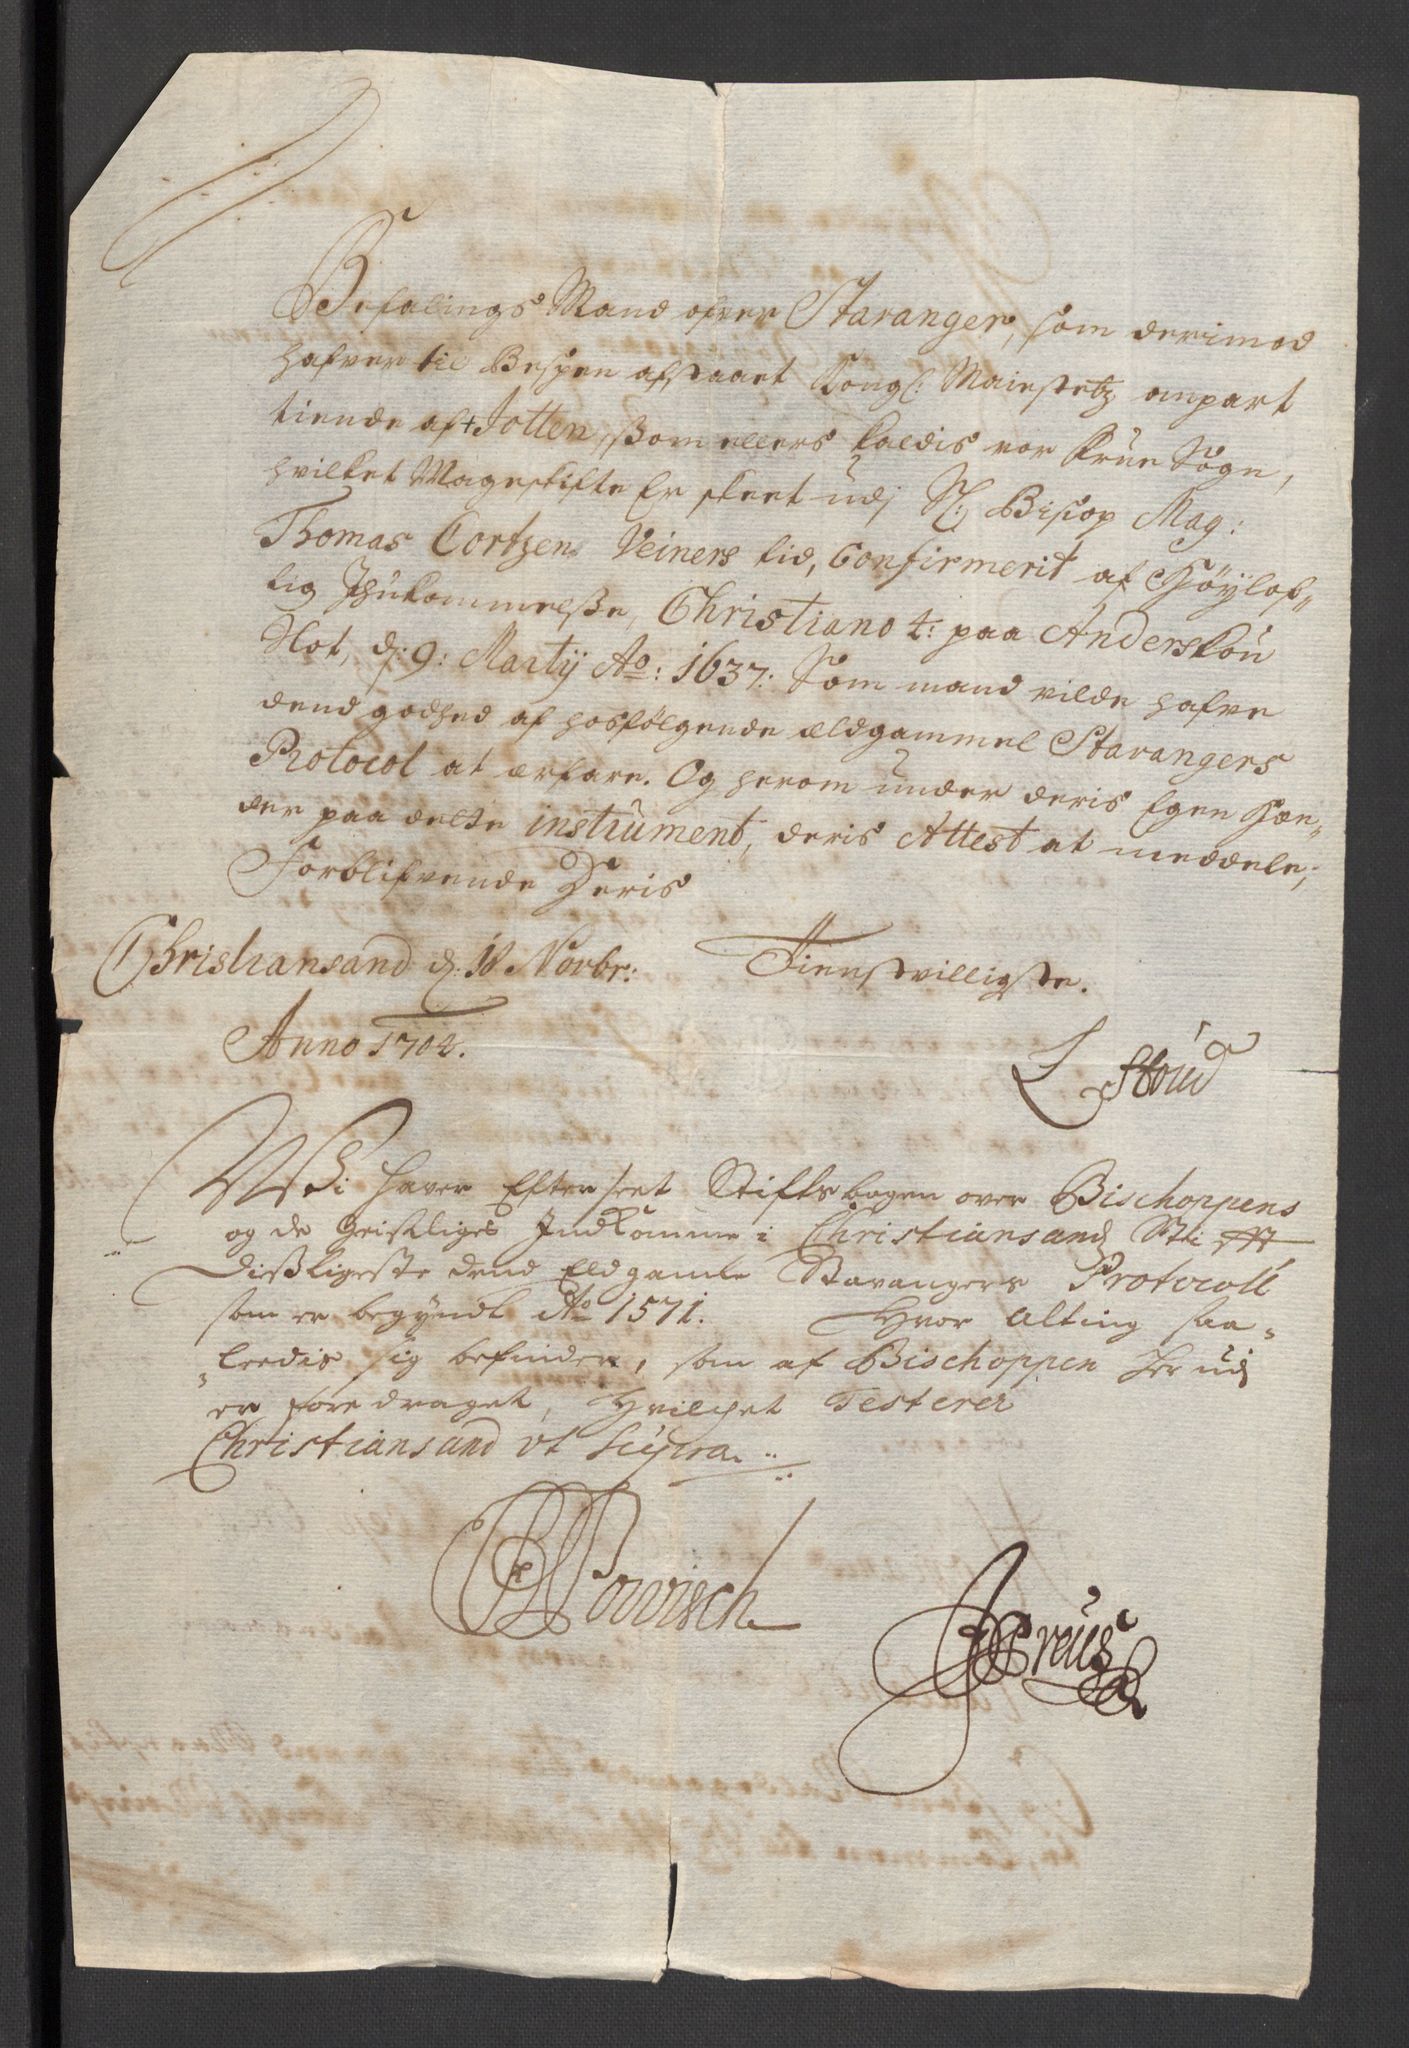 Befalings Mand ofver Stavanger, som derimod
hafver til Bespen afstaaet Kongl: Maiestetz anpart
tiende af + Jotten, ßom ellers kaldis vor Frue Sogn,
hvilket Mageskifte Er skeet udj Sl: Bisiop Mag:
Thomas Cortzen Veiners tid, Confirmerit af Høylof„
lig Ihukommelße, Christiano 4: paa Anderskou
Slot, d: 9: Martij Ao: 1637: Som mand vilde hafve
dend godhed af hosfølgende ældgammel Stavangers
Protocol at ærfare. Og herom under deris Egen Hæn„
der paa dette instrument, deris Attest at meddele;
Forblifvende Deris
Christiansand d: 18 Novbr: Tienstvilligste.
Anno 1704.
L Stoud
Wi haver Efterseet Stiftsbogen over Bischoppens
og de Geistliges Indkomme i Christiansand Sti
dißligeste dend Eldgamle Stavangers Protocoll
som er begyndt Ao 1571. Hvor alting saa„
„leedis sig befinder, som af Bischoppen her udj
er foredraget, Hvilchet Testerer
Christiansand vt supra.
Powisch
Jreuus